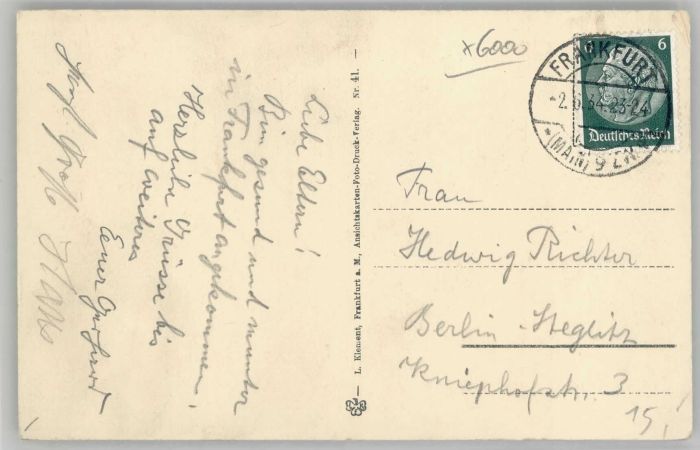 Liebe Eltern!
Bin gesund und munter
in Frankfurt angekommen.
Herzliche Grüsse bis
auf weiteres
Euer Gerhard
Hans
L. Klement, Frankfurt a. M., Ansichtskarten-Foto-Druck-Verlag. Nr. 41.
x6000
6 6
Deutsches Reich
FRANKFURT
-2.6.34.23-24
*(MAIN) 9
Frau
Hedwig Richter
Berlin-Steglitz
Kniephofstr. 3
15,-